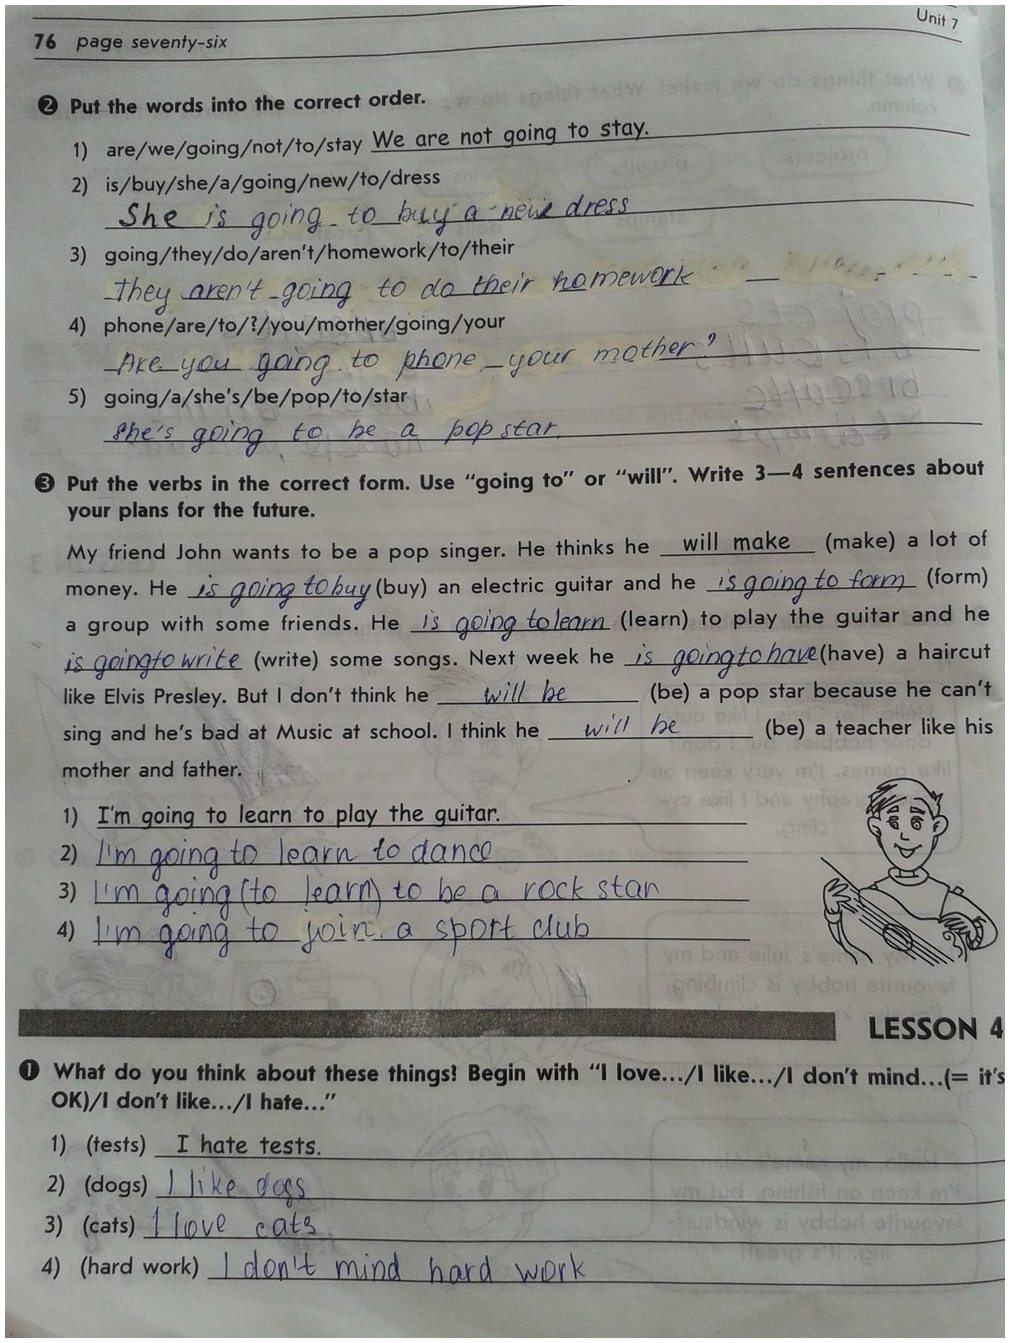 Unit 7
76 page seventy-six
❷ Put the words into the correct order.
1) are/we/going/not/to/stay We are not going to stay.
2) is/buy/she/a/going/new/to/dress
She is going to buy a new dress
3) going/they/do/aren't/homework/to/their
They aren't going to do their homework
4) phone/are/to/?/you/mother/going/your
Are you going to phone your mother?
5) going/a/she's/be/pop/to/star
She's going to be a pop star.
❸ Put the verbs in the correct form. Use "going to" or "will". Write 3—4 sentences about
your plans for the future.
My friend John wants to be a pop singer. He thinks he will make (make) a lot of
money. He is going to buy (buy) an electric guitar and he is going to form (form)
a group with some friends. He is going to learn (learn) to play the guitar and he
is going to write (write) some songs. Next week he is going to have (have) a haircut
like Elvis Presley. But I don't think he will be (be) a pop star because he can't
sing and he's bad at Music at school. I think he will be (be) a teacher like his
mother and father.
1) I'm going to learn to play the guitar.
2) I'm going to learn to dance
3) I'm going (to learn) to be a rock star
4) I'm going to join a sport club
LESSON 4
❶ What do you think about these things? Begin with "I love.../I like.../I don't mind...(= it's
OK)/I don't like.../I hate..."
1) (tests) I hate tests.
2) (dogs) I like dogs
3) (cats) I love cats
4) (hard work) I don't mind hard work